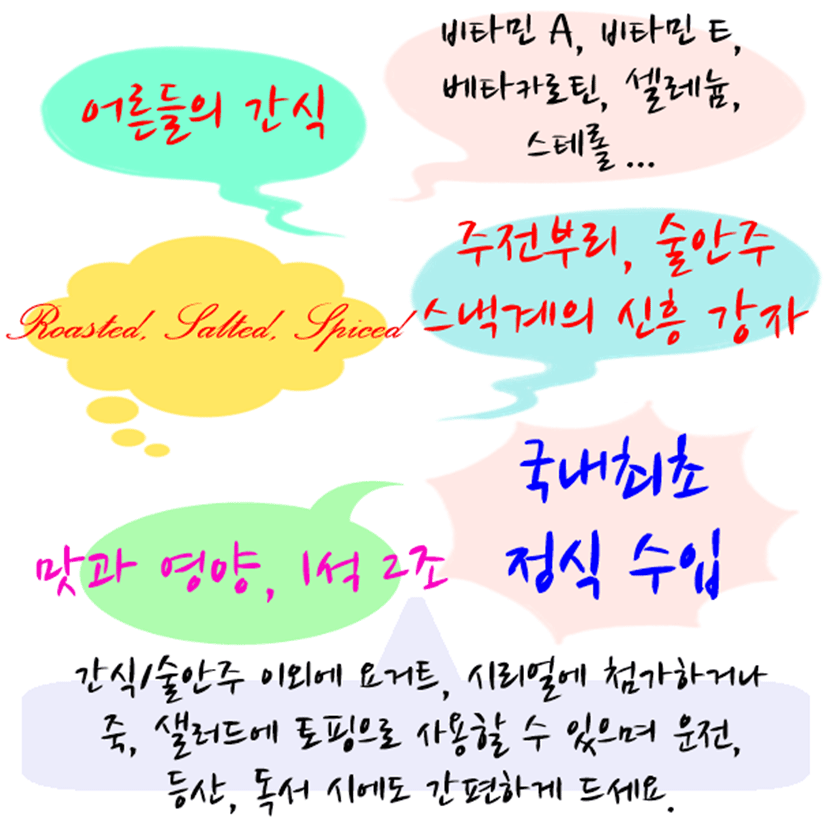 어른들의 간식
비타민 A, 비타민 E,
베타카로틴, 셀레늄,
스테롤 ...
Roasted, Salted, Spiced
주전부리, 술안주
스낵계의 신흥 강자
맛과 영양, 1석 2조
국내최초
정식 수입
간식/술안주 이외에 요거트, 시리얼에 첨가하거나
죽, 샐러드에 토핑으로 사용할 수 있으며 운전,
등산, 독서 시에도 간편하게 드세요.